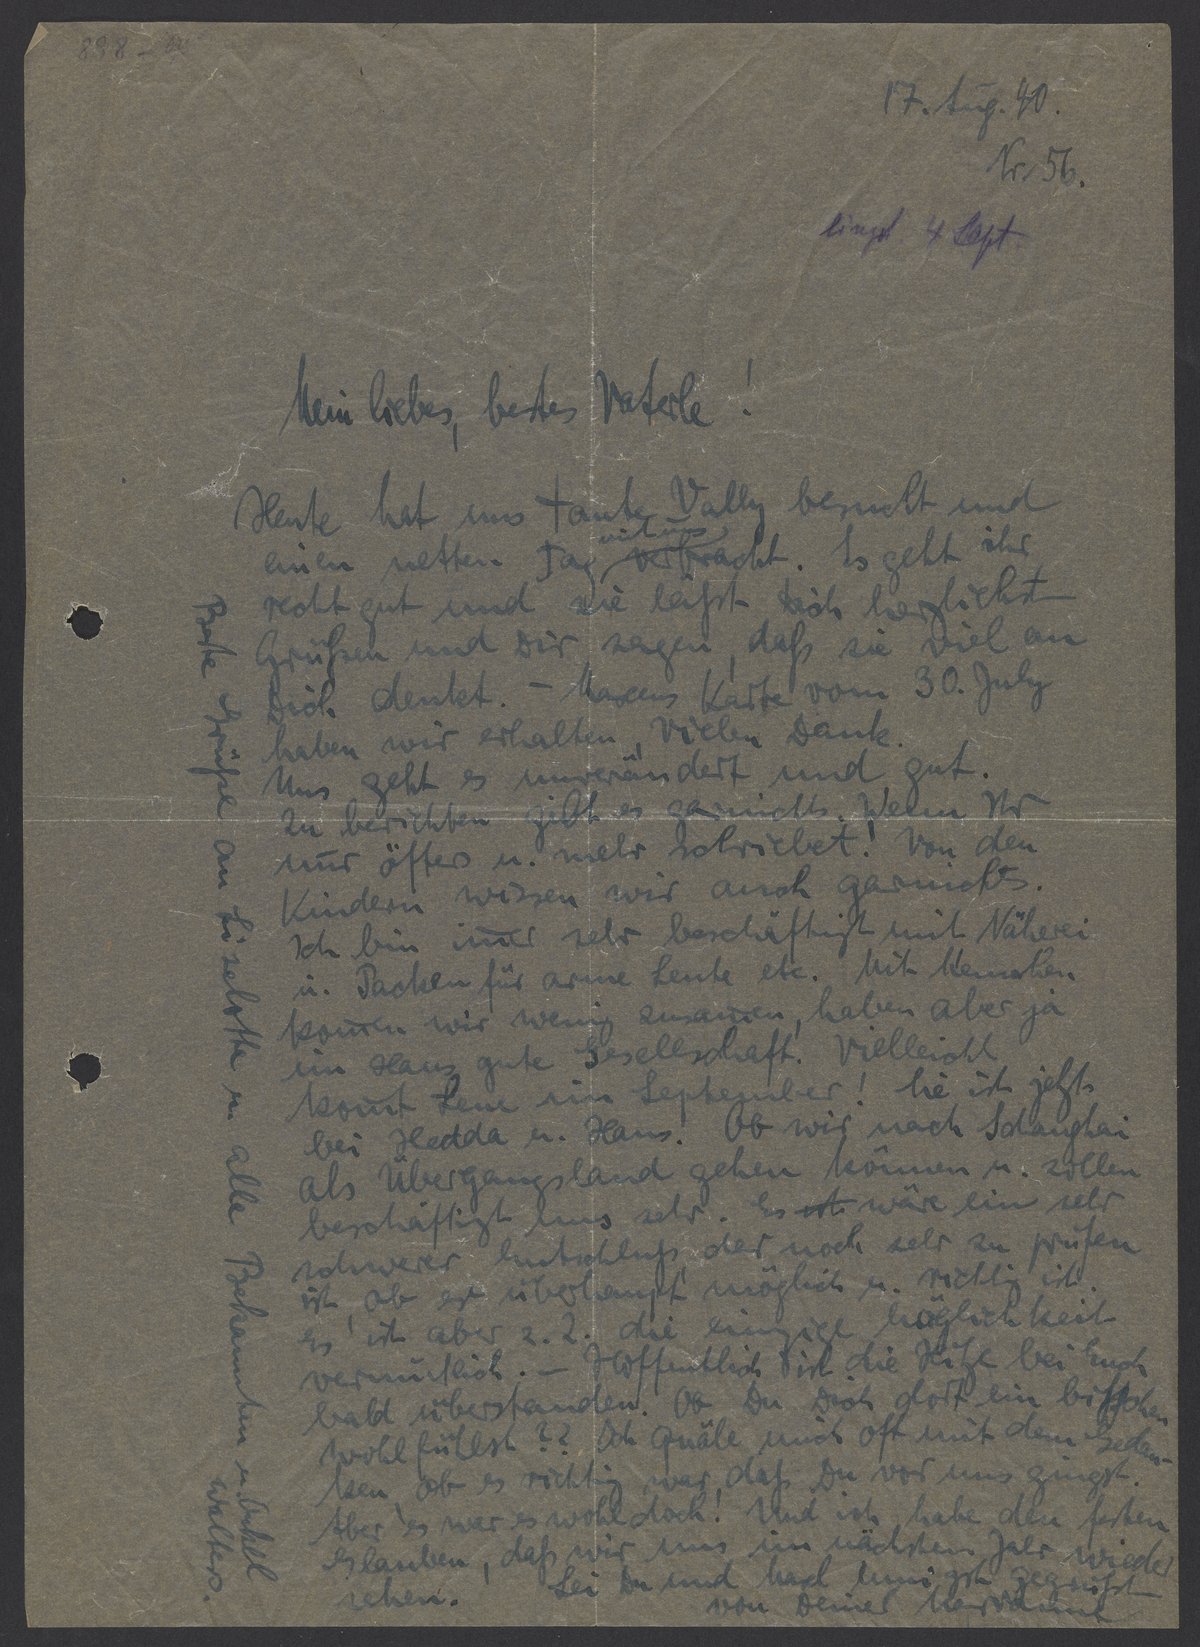 898 –
17. Aug. 40.
Nr. 56.
eingt. 4 Sept.
Mein liebes, bestes Vaterle!
Heute hat uns Tante Vally besucht und
mit uns
einen netten Tag verbracht. Es geht ihr
recht gut und sie lässt Dich herzlichst
Grüßen und Dir sagen, daß sie viel an
Dich denkt. – Maxens Karte vom 30. July
haben wir erhalten, vielen Dank.
Uns geht es unverändert und gut.
Zu berichten gibt es garnichts. Wenn Ihr
nur öfters u. mehr schriebet! Von den
Kindern wissen wir auch garnichts.
Ich bin im̄er sehr beschäftigt mit Näherei
u. Packen für arme Leute etc. Mit Menschen
kom̄en wir wenig zusam̄en, haben aber ja
im Haus gute Gesellschaft. Vielleicht
kom̄t Lene im September! Sie ist jetzt
bei Hedda u. Hans! Ob wir nach Schanghai
als Übergangsland gehen können u. sollen
beschäftigt uns sehr. Es ist wäre ein sehr
schwerer Entschluß, der noch sehr zu prüfen
ist, ob er überhaupt möglich u. richtig ist.
Es ist aber z. Z. die einzige Möglichkeit
vermutlich. – Hoffentlich ist die Hitze bei Euch
bald überstanden. Ob Du Dich dort ein bißchen
wohl fühlst?? Ich quäle mich oft mit dem Gedan-
ken, ob es richtig war, daß Du vor uns gingst.
Aber es war es wohl doch! Und ich habe den festen
Glauben, daß wir uns im nächsten Jahr wieder
sehen. Sei Du und Maxl innigst gegrüßt
von Deiner Marianne
Beste Grüße an Liselotte u. alle Bekannten u. Onkel
Walters.